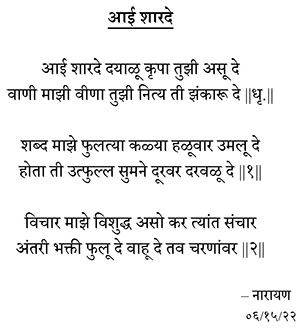 आई शारदे
आई शारदे दयाळू कृपा तुझी असू दे
वाणी माझी वीणा तुझी नित्य ती झंकारू दे ||धृ.||
शब्द माझे फुलत्या कळ्या हळूवार उमलू दे
होता ती उत्फुल्ल सुमने दूरवर दरवळू दे ||१||
विचार माझे विशुद्ध असो कर त्यांत संचार
अंतरी भक्ती फुलू दे वाहू दे तव चरणांवर ||२||
– नारायण
०६/१५/२२